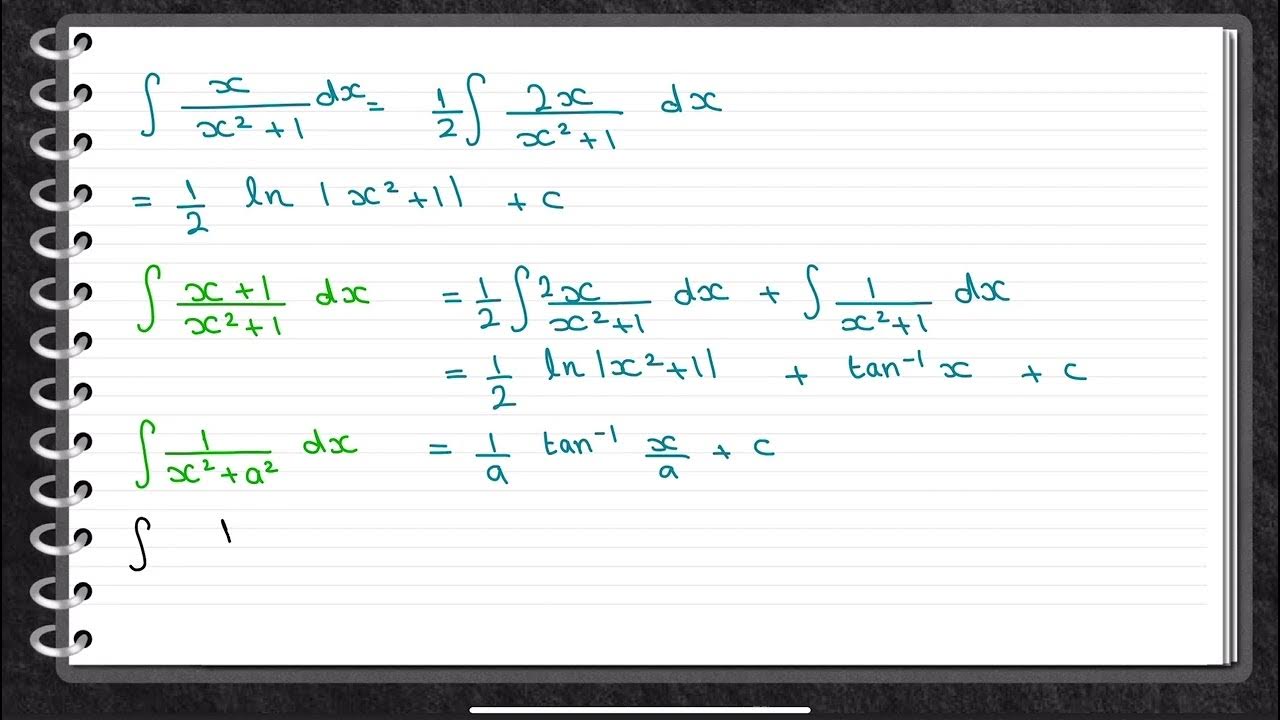 ∫ x/(x² + 1) dx = 1/2 ∫ 2x/(x² + 1) dx
= 1/2 ln |x² + 1| + c
∫ (x + 1)/(x² + 1) dx = 1/2 ∫ 2x/(x² + 1) dx + ∫ 1/(x² + 1) dx
= 1/2 ln |x² + 1| + tan⁻¹ x + c
∫ 1/(x² + a²) dx = 1/a tan⁻¹ x/a + c
∫ 1